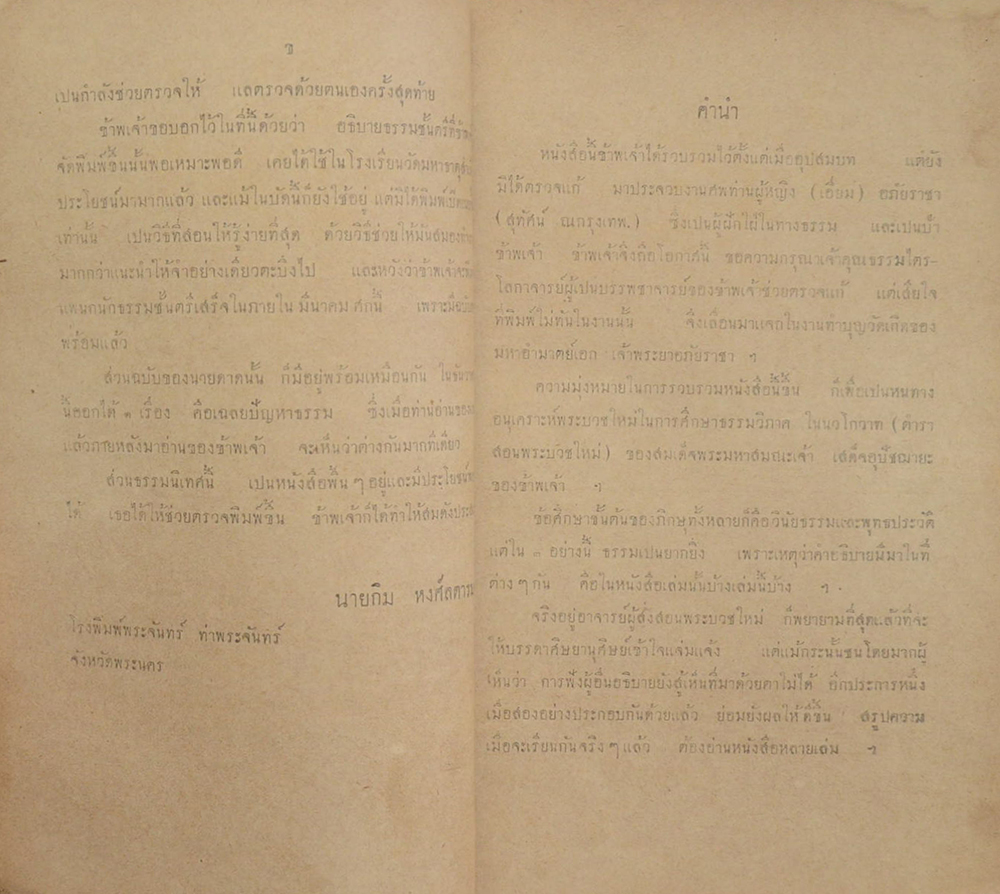 ข
เปนกำลังช่วยตรวจให้ แลตรวจด้วยตนเองครั้งสุดท้าย
ข้าพเจ้าขอบอกไว้ในที่นี้ด้วยว่า อธิบายธรรมชั้นตรีที่
จัดพิมพ์ขึ้นนั้นพอเหมาะพอดี เคยได้ใช้ในโรงเรียนวัดมหาธาตุ
ประโยชน์มามากแล้ว และแม้ในบัดนี้ก็ยังใช้อยู่ แต่มิได้พิมพ์
เท่านั้น เปนวิธีที่สอนให้รู้ง่ายที่สุด ด้วยวิธีช่วยให้มันสมอง
มากกว่าแนะนำให้จำอย่างเดียวตะบึงไป และหวังว่าข้าพเจ้าจะ
แผนกนักธรรมชั้นตรีเสร็จในภายใน มีนาคม ศกนี้ เพราะมี
พร้อมแล้ว
ส่วนฉบับของนายดาดนั้น ก็มีอยู่พร้อมเหมือนกัน
นี้ออกได้ ๑ เรื่อง คือเฉลยปัญหาธรรม ซึ่งเมื่อท่านอ่านของ
แล้วภายหลังมาอ่านของข้าพเจ้า จะเห็นว่าต่างกันมากทีเดียว
ส่วนธรรมนิเทศนี้ เปนหนังสือพื้น ๆ อยู่และมีประโยชน์
ได้ เธอได้ให้ช่วยตรวจพิมพ์ขึ้น ข้าพเจ้าก็ได้ทำให้สมดัง
นายกิม หงศ์ลดารมภ์
โรงพิมพ์พระจันทร์ ท่าพระจันทร์
จังหวัดพระนคร
คำนำ
หนังสือนี้ข้าพเจ้าได้รวบรวมไว้ตั้งแต่เมื่ออุปสมบท แต่ยัง
มิได้ตรวจแก้ มาประจวบงานศพท่านผู้หญิง (เอี่ยม) อภัยราชา
(สุทัศน์ ณกรุงเทพ.) ซึ่งเปนผู้ฝักใฝ่ในทางธรรม และเปนป้า
ข้าพเจ้า ข้าพเจ้าจึงถือโอกาศนี้ ขอความกรุณาเจ้าคุณธรรมไตร-
โลกาจารย์ผู้เปนบรรพชาจารย์ของข้าพเจ้าช่วยตรวจแก้ แต่เสียใจ
ที่พิมพ์ไม่ทันในงานนั้น จึงเลื่อนมาแจกในงานทำบุญวัดเกิดของ
มหาอำมาตย์เอก เจ้าพระยาอภัยราชา ฯ
ความมุ่งหมายในการรวบรวมหนังสือนี้ขึ้น ก็เพื่อเปนหนทาง
อนุเคราะห์พระบวชใหม่ในการศึกษาธรรมวิภาค ในนวโกวาท (ตำรา
สอนพระบวชใหม่) ของสมเด็จพระมหาสมณะเจ้า เสด็จอุปัชฌายะ
ของข้าพเจ้า ฯ
ข้อศึกษาชั้นต้นของภิกษุทั้งหลายก็คือวินัยธรรมและพุทธประวัติ
แต่ใน ๓ อย่างนี้ ธรรมเปนยากยิ่ง เพราะเหตุว่าคำอธิบายมีมาในที่
ต่าง ๆ กัน คือในหนังสือเล่มนั้นบ้างเล่มนี้บ้าง ฯ
จริงอยู่อาจารย์ผู้สั่งสอนพระบวชใหม่ ก็พยายามที่สุดแล้วที่จะ
ให้บรรดาศิษยานุศิษย์เข้าใจแจ่มแจ้ง แต่แม้กระนั้นชนโดยมากผู้
เห็นว่า การฟังผู้อื่นอธิบายยังสู้เห็นที่มาด้วยตาไม่ได้ อีกประการหนึ่ง
เมื่อสองอย่างประกอบกันด้วยแล้ว ย่อมยังผลให้ดีขึ้น สรุปความ
เมื่อจะเรียนกันจริง ๆ แล้ว ต้องอ่านหนังสือหลายเล่ม ฯ